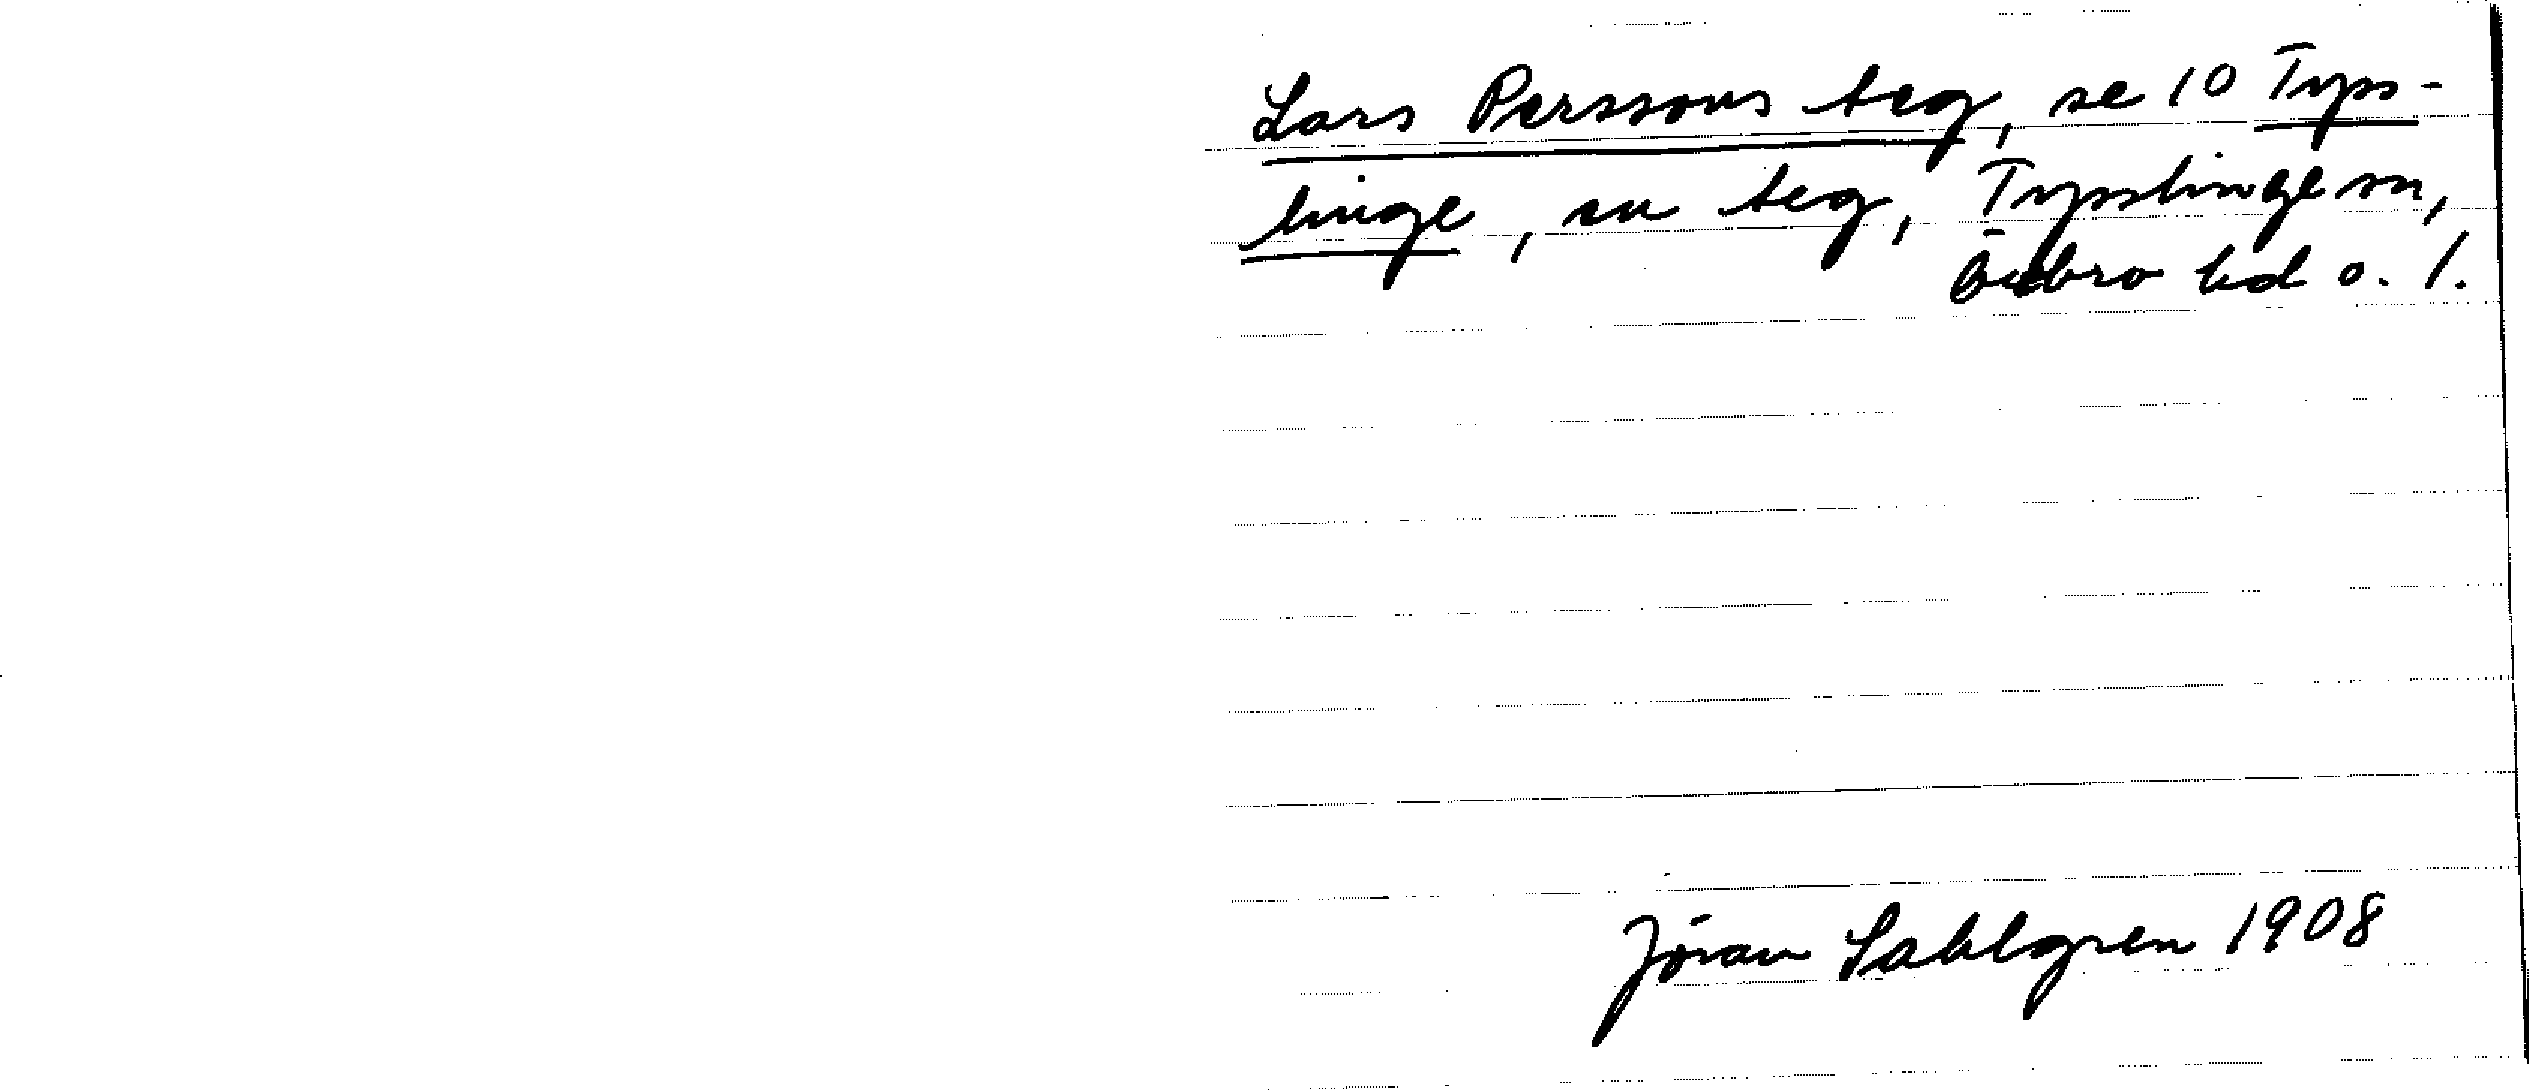 Lars Perssons teg, se 10 Tyss-
linge, en teg, Tysslinge sn,
Örebro hd o. l.
Jöran Sahlgren 1908